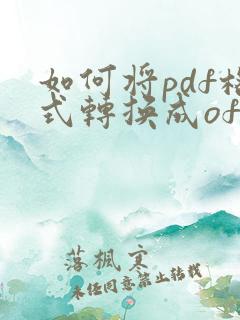 如何将pdf格
式轉换成of
落楓寒
未任同意禁止转载